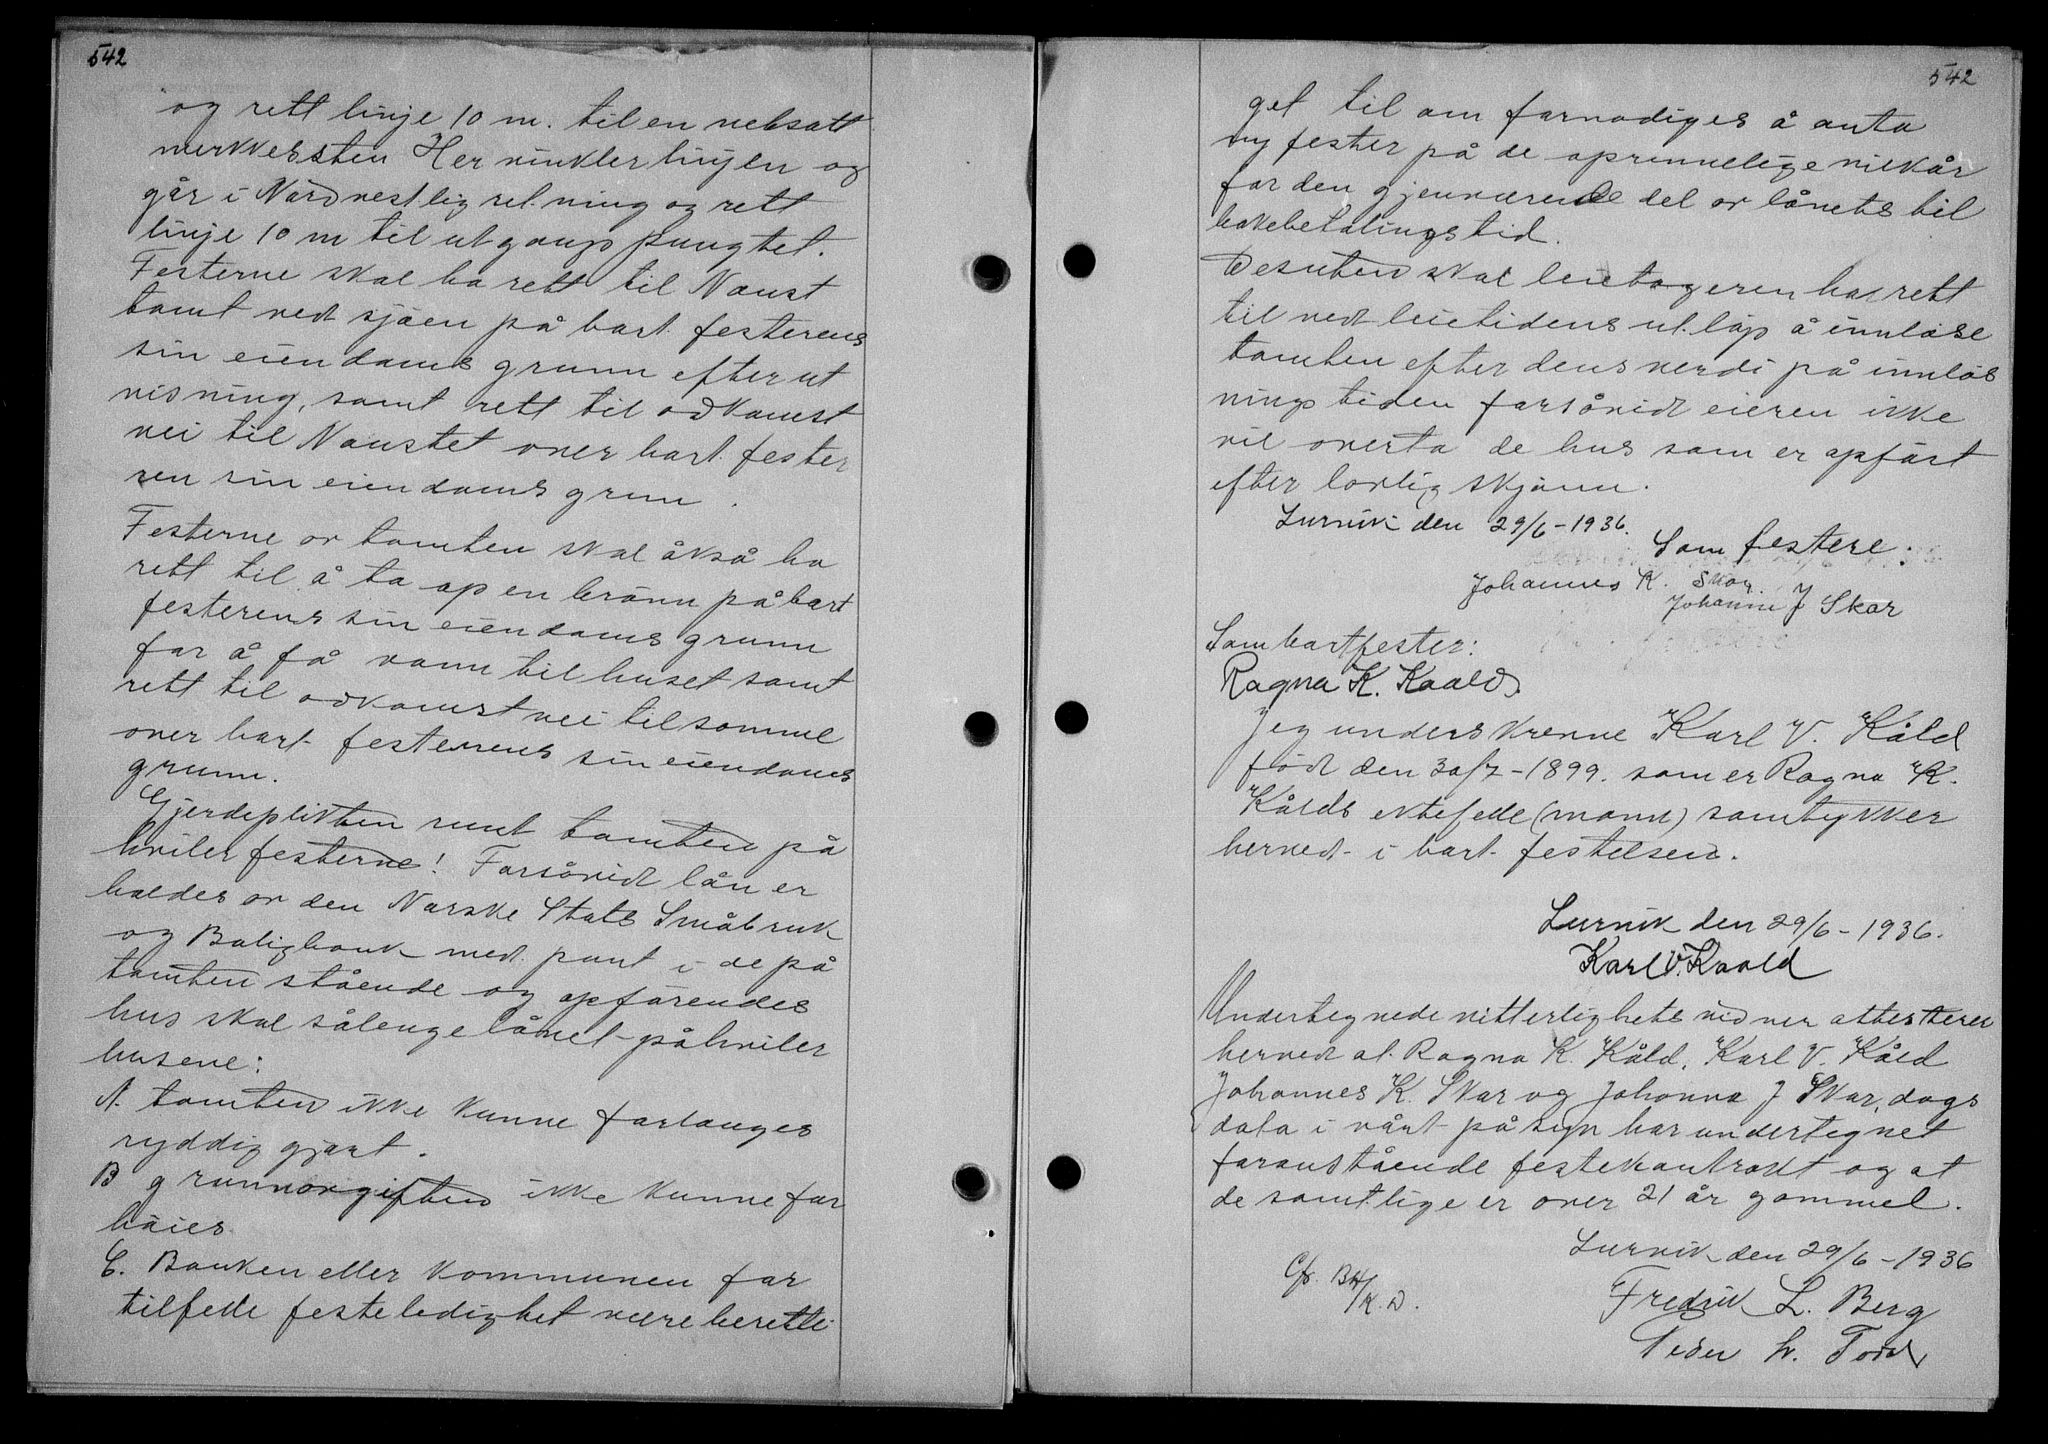 542
og rett linje 10 m. til en nedsatt
merkkessten Her vinkler linjen og
går i Nordvestlig retning og rett
linje 10 m til utgangspungtet.
Festerne skal ha rett til Naust
tomt ved sjøen på bort festerens
sin eiendoms grunn efter ut
visning, samt rett til adkomst
vei til Naustet over bort fester
ren sin eiendoms grun.
Festerne av tomten skal åkså ha
rett til å ta op en brønn på bort
festerens sin eiendoms grunn
for å få vann til huset samt
rett til adkomst vei til somme
over bort festerens sin eiendoms
grunn.
Gjerdeplikten runt tomten på
hviler festerne! Forsåvidt lån er
holdes av den Norske Stats Småbruk
og Boligbank med pant i de på
tomten stående og opførendes
hus skal sålenge lånet påhviler
husene:
A. tomten ikke kunne forlanges
ryddiggjort.
B grunnavgiften ikke kunne for
høies
C. Banken eller Kommunen for
tilfelle festeledighet være beretti
542
get til om fornødiges å anta
ny fester på de oprinnelige vilkår
for den gjenværende del av lånets til
bakebetalingstid.
Desuten skal leietageren ha rett
til ved leietidens utløp å innløse
tomten efter dens verdi på innløs
nings tiden forsåvidt eieren ikke
vil overta de hus som er opført
efter lovlig skjønn.
Lurvik den 29/6-1936.
Som festere.
Johannes K. Skar.
Johanna J Skar
Som bortfester:
Ragna K. Kaald.
Jeg underskrevne Karl V. Kåld
født den 30/7-1899. som er Ragna K.
Kålds ektefelle (mann) samtykker
herved i bort festelsen.
Lurvik den 29/6-1936.
Karl V. Kaald
Undertegnede vitterlighets vidner attesterer
herved at Ragna K. Kåld, Karl V. Kåld
Johannes K. Skar og Johanna J Skar, dags
dato i vårt påsyn har undertegnet
foranstående festekontrakt og at
de samtlige er over 21 år gammel.
Lurvik den 29/6-1936
Fredrik L. Berg
Peder